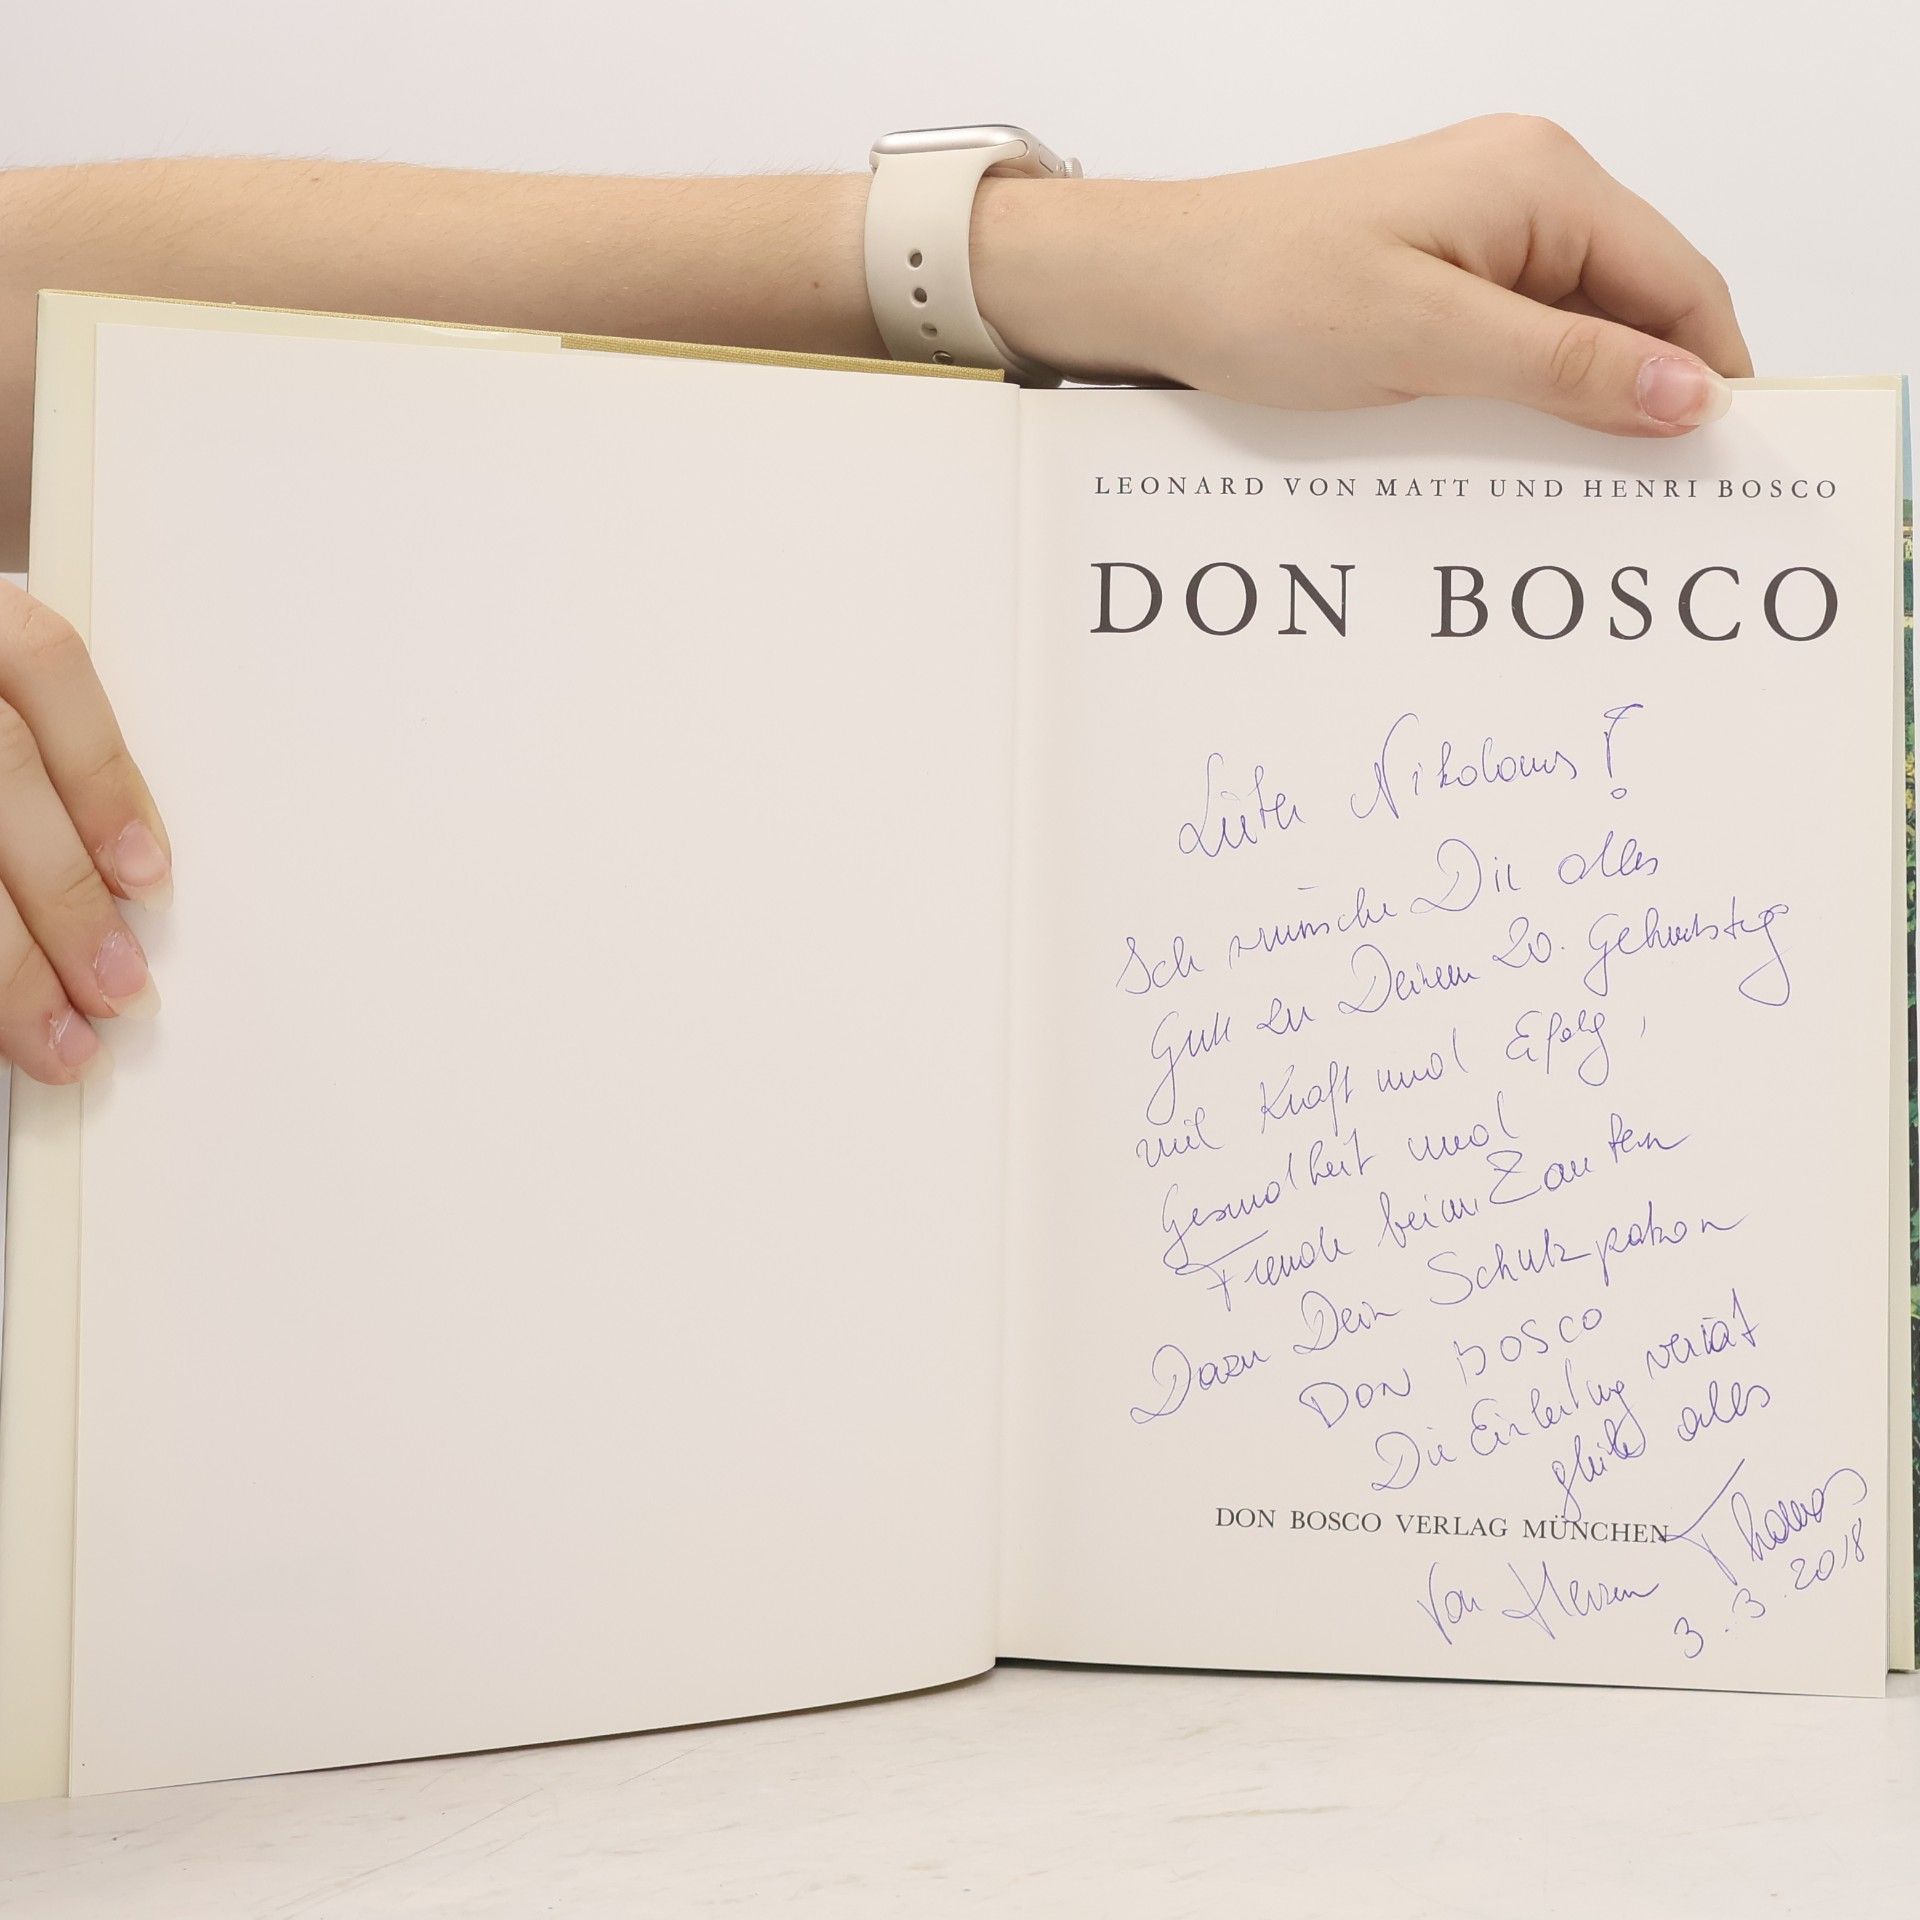 LEONARD VON MATT UND HENRI BOSCO
DON BOSCO
Lieber Nikolaus!
Ich wünsche Dir alles
Gute zu Deinem 20. Geburtstag
mit Kraft und Erfolg,
Gesundheit und
Freude beim Zaubern
Dazu Dein Schutzpatron
DON BOSCO
Die Einleitung verrät
gleich alles
DON BOSCO VERLAG MÜNCHEN
Von Herzen Thomas
3.3.2018